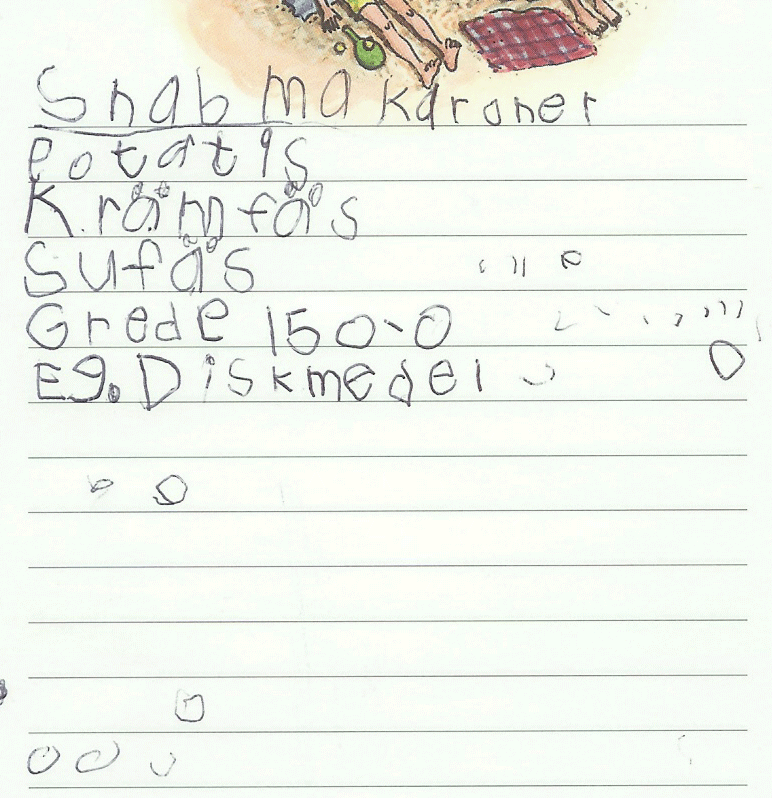 Snab makaroner
Potatis
Krämfäs
Sufäs
Grede 150-0
E9. Diskmedel